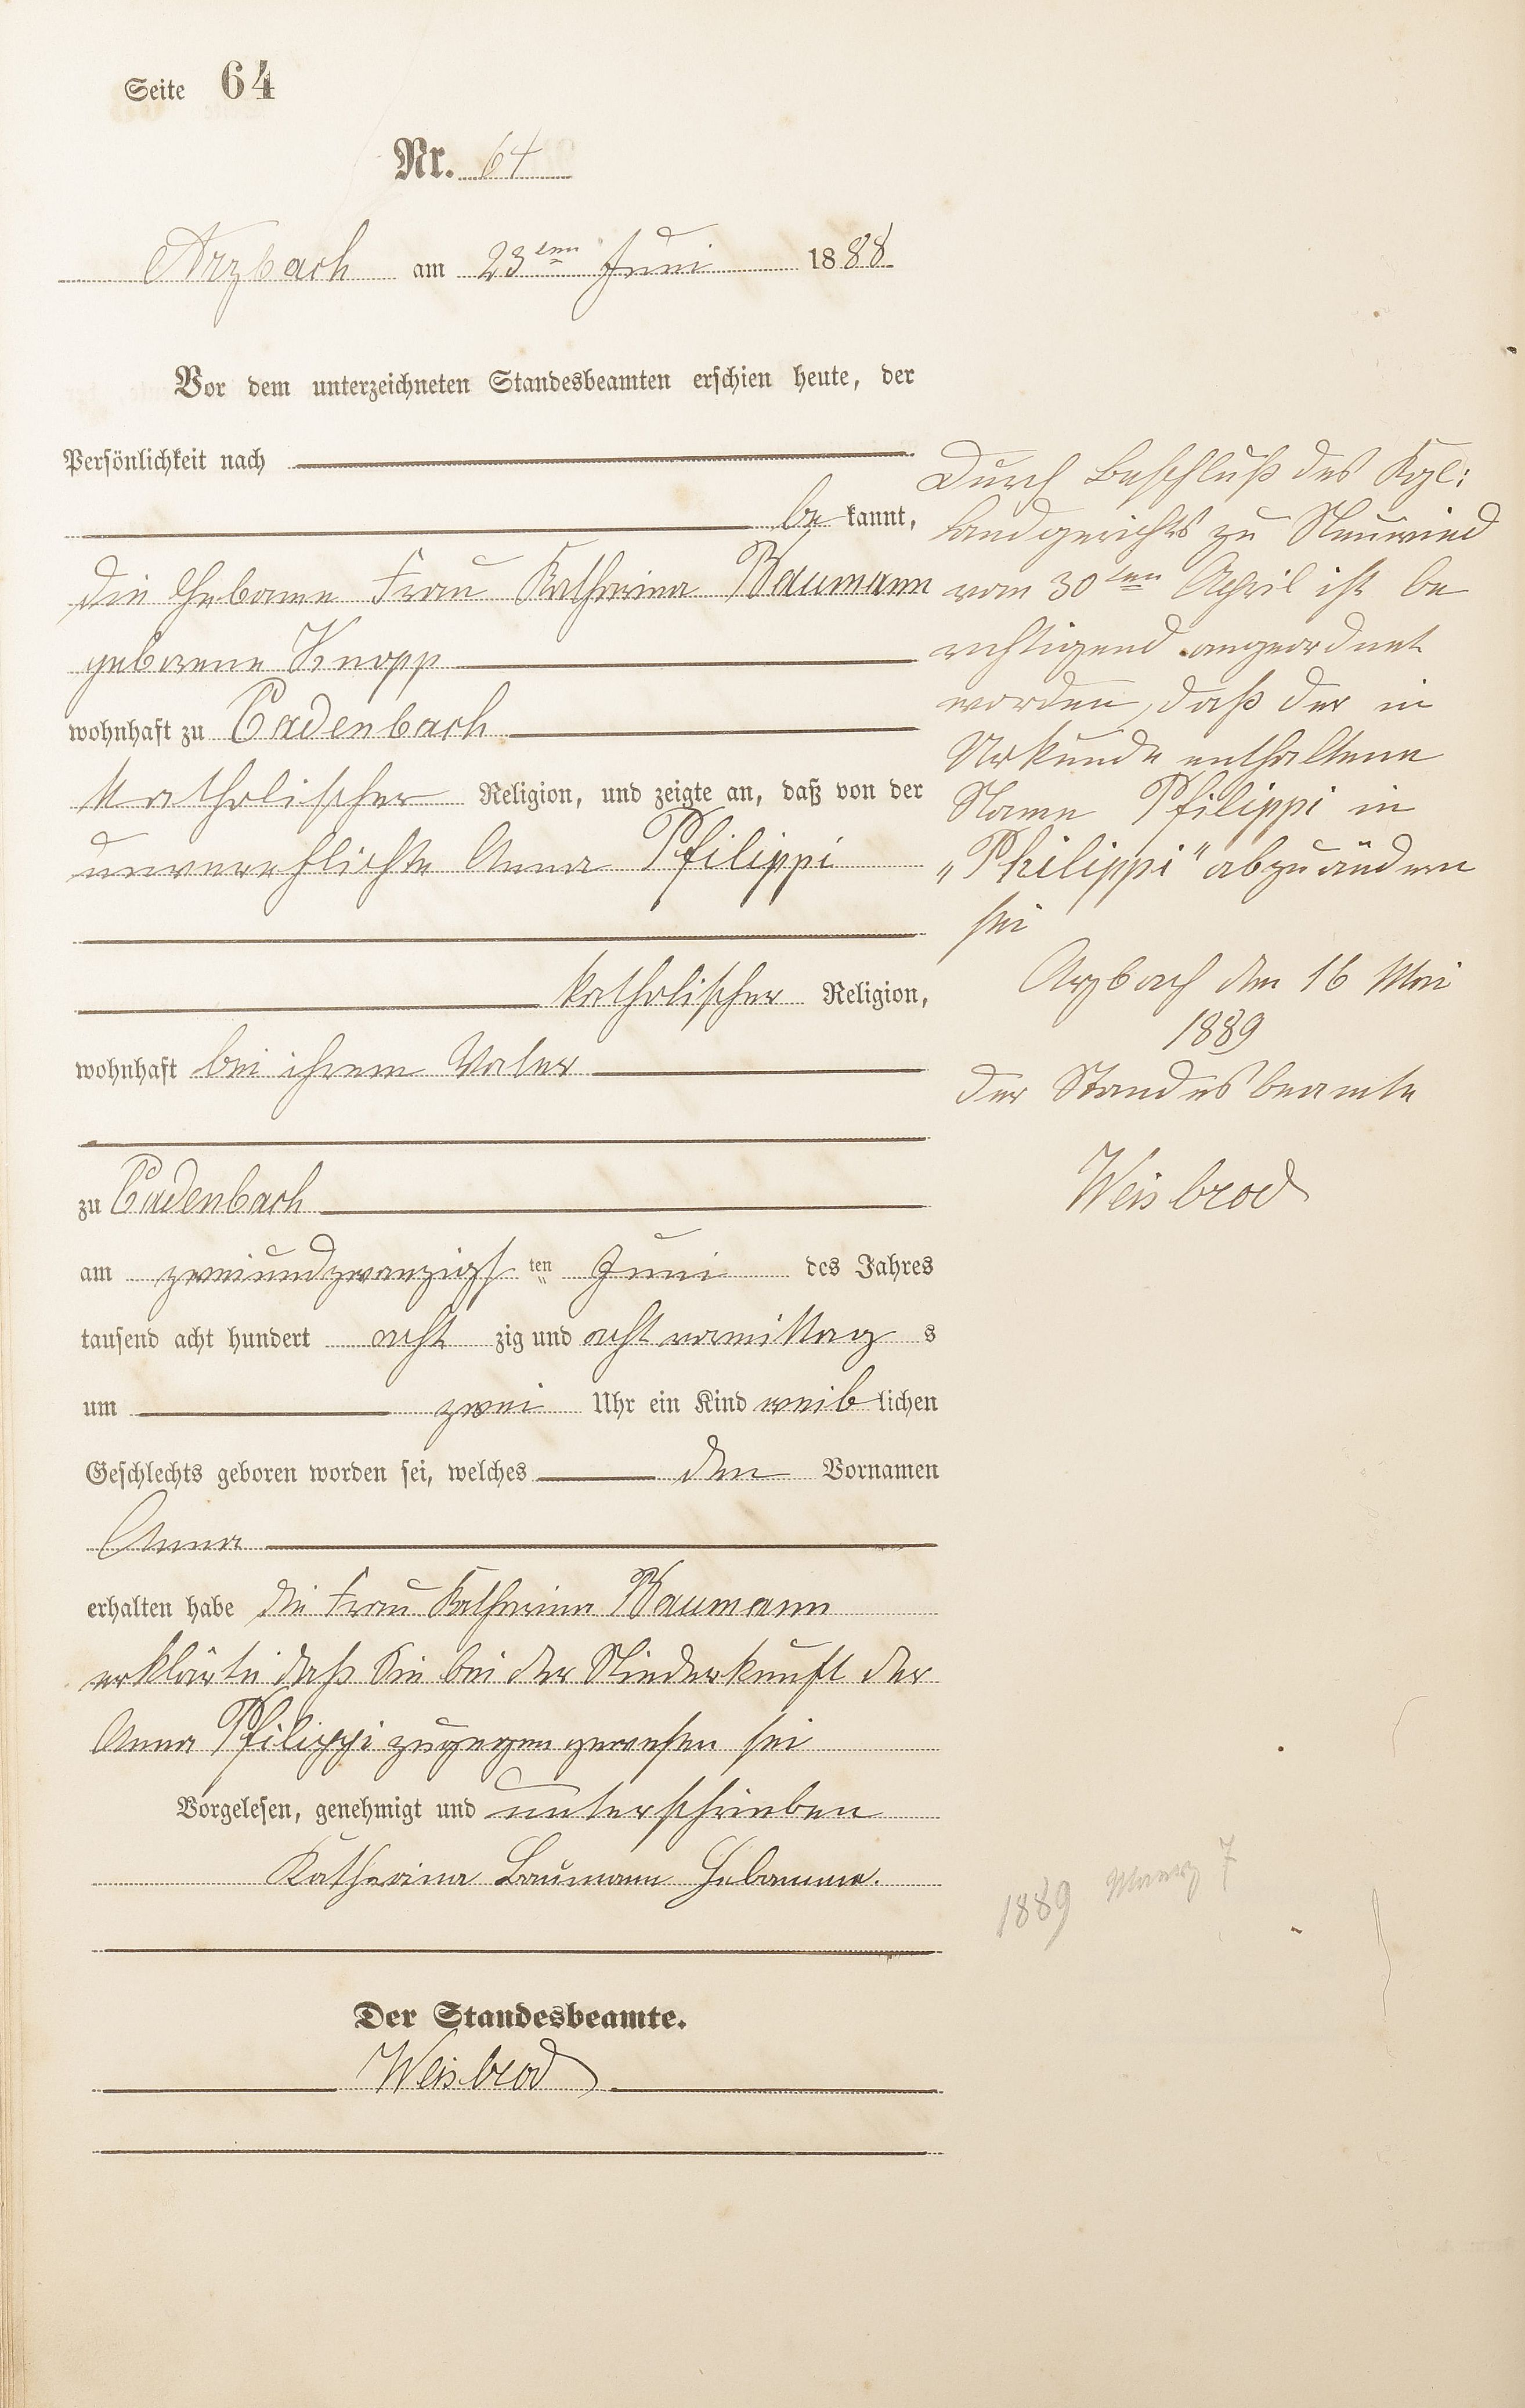 Seite 64
Nr. 64
Arzbach am 23ten Juni 1888
Vor dem unterzeichneten Standesbeamten erschien heute, der
Persönlichkeit nach
be kannt,
die Hebame Frau Katharina Baumann
geborene Knopp
wohnhaft zu Cadenbach
katholischer Religion, und zeigte an, daß von der
unverehlichte Anna Pfilippi
katholischer Religion,
wohnhaft bei ihrem Vater
zu Cadenbach
am zweiundzwanzigs ten Juni des Jahres
tausend acht hundert acht zig und acht vormittag s
um zwei Uhr ein Kind weib lichen
Geschlechts geboren worden sei, welches den Vornamen
Anna
erhalten habe die Frau Katharina Baumann
erklärte daß Sie bei der Niederkunft der
Anna Pfilippi zugegen gewesen sei
Vorgelesen, genehmigt und unterschrieben
Katharina Baumann Hebamme.
Der Standesbeamte.
Weisbrod
Durch Beschluß des Kgl:
Landgerichts zu Neuwied
vom 30ten April ist be
richtigend angeordnet
worden, daß der in
Urkunde enthaltene
Name Pfilippi in
„Philippi" abzuändern
sei
Arzbach den 16 Mai
1889
der Standesbeamte
Weisbrod
1889